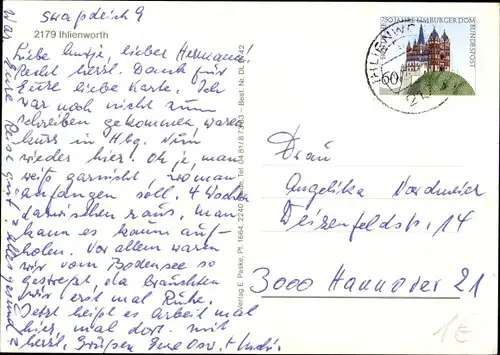 2179 Ihlienworth
Liebe Antje, lieber Hermann!
Recht herzl. Dank für
Eure liebe Karte. Ich
war noch nicht zum
schreiben gekommen, waren
kurz in Hbg. Nun
wieder hier. Oh je, man
weiß garnicht wo man
anfangen soll. 4 Wochen
dazwischen raus, man
kann es kaum auf-
holen. Vor allem waren
wir vom Bodensee so
gestreßt, da brauchten
wir erst mal Ruhe.
Jetzt heißt es Arbeit mal
hier, mal dort. Mit
herzl. Grüßen Eure
War Eure Reise gut? Alles gesund
Verlag E. Paske, Pf. 1664, 2240 Best. Nr. DL
750 JAHRE LIMBURGER DOM
DEUTSCHE BUNDESPOST
60
IHLIENWO
Frau
Angelika Nordmeier
Weizenfeldstr. 14
3000 Hannover 21
1€